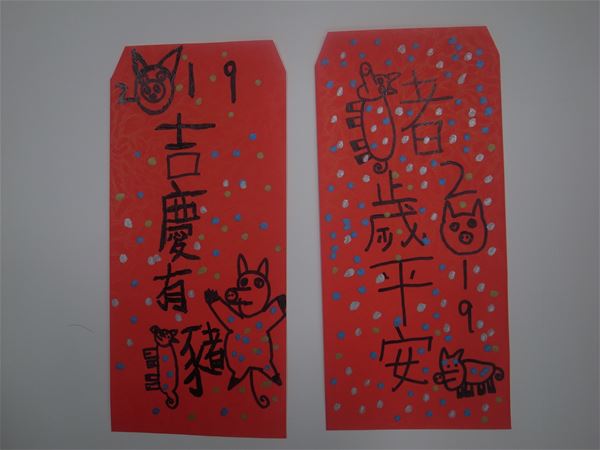 2019
吉慶有豬
豬歲平安
2019